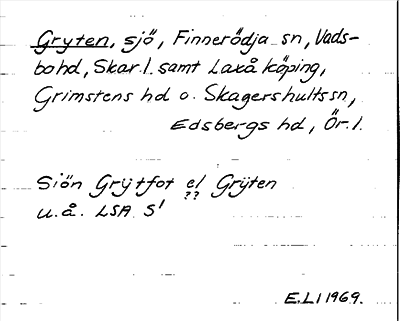 Gryten, sjö, Finnerödja sn, Vads-
bo hd, Skar. l. samt Laxå köping,
Grimstens hd o. Skagershults sn,
Edsbergs hd, Ör. l.
Siön Grÿtfot el Grÿten
??
u.å. LSA S1
E.LI 1969.